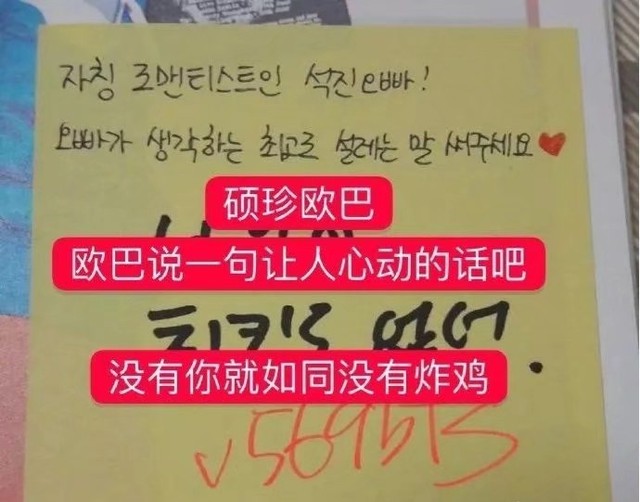 자칭 로맨티스트인 석진오빠!
오빠가 생각하는 최고로 설레는 말 써주세요♥
硕珍欧巴
欧巴说一句让人心动的话吧
치킨도 없어.
没有你就如同没有炸鸡